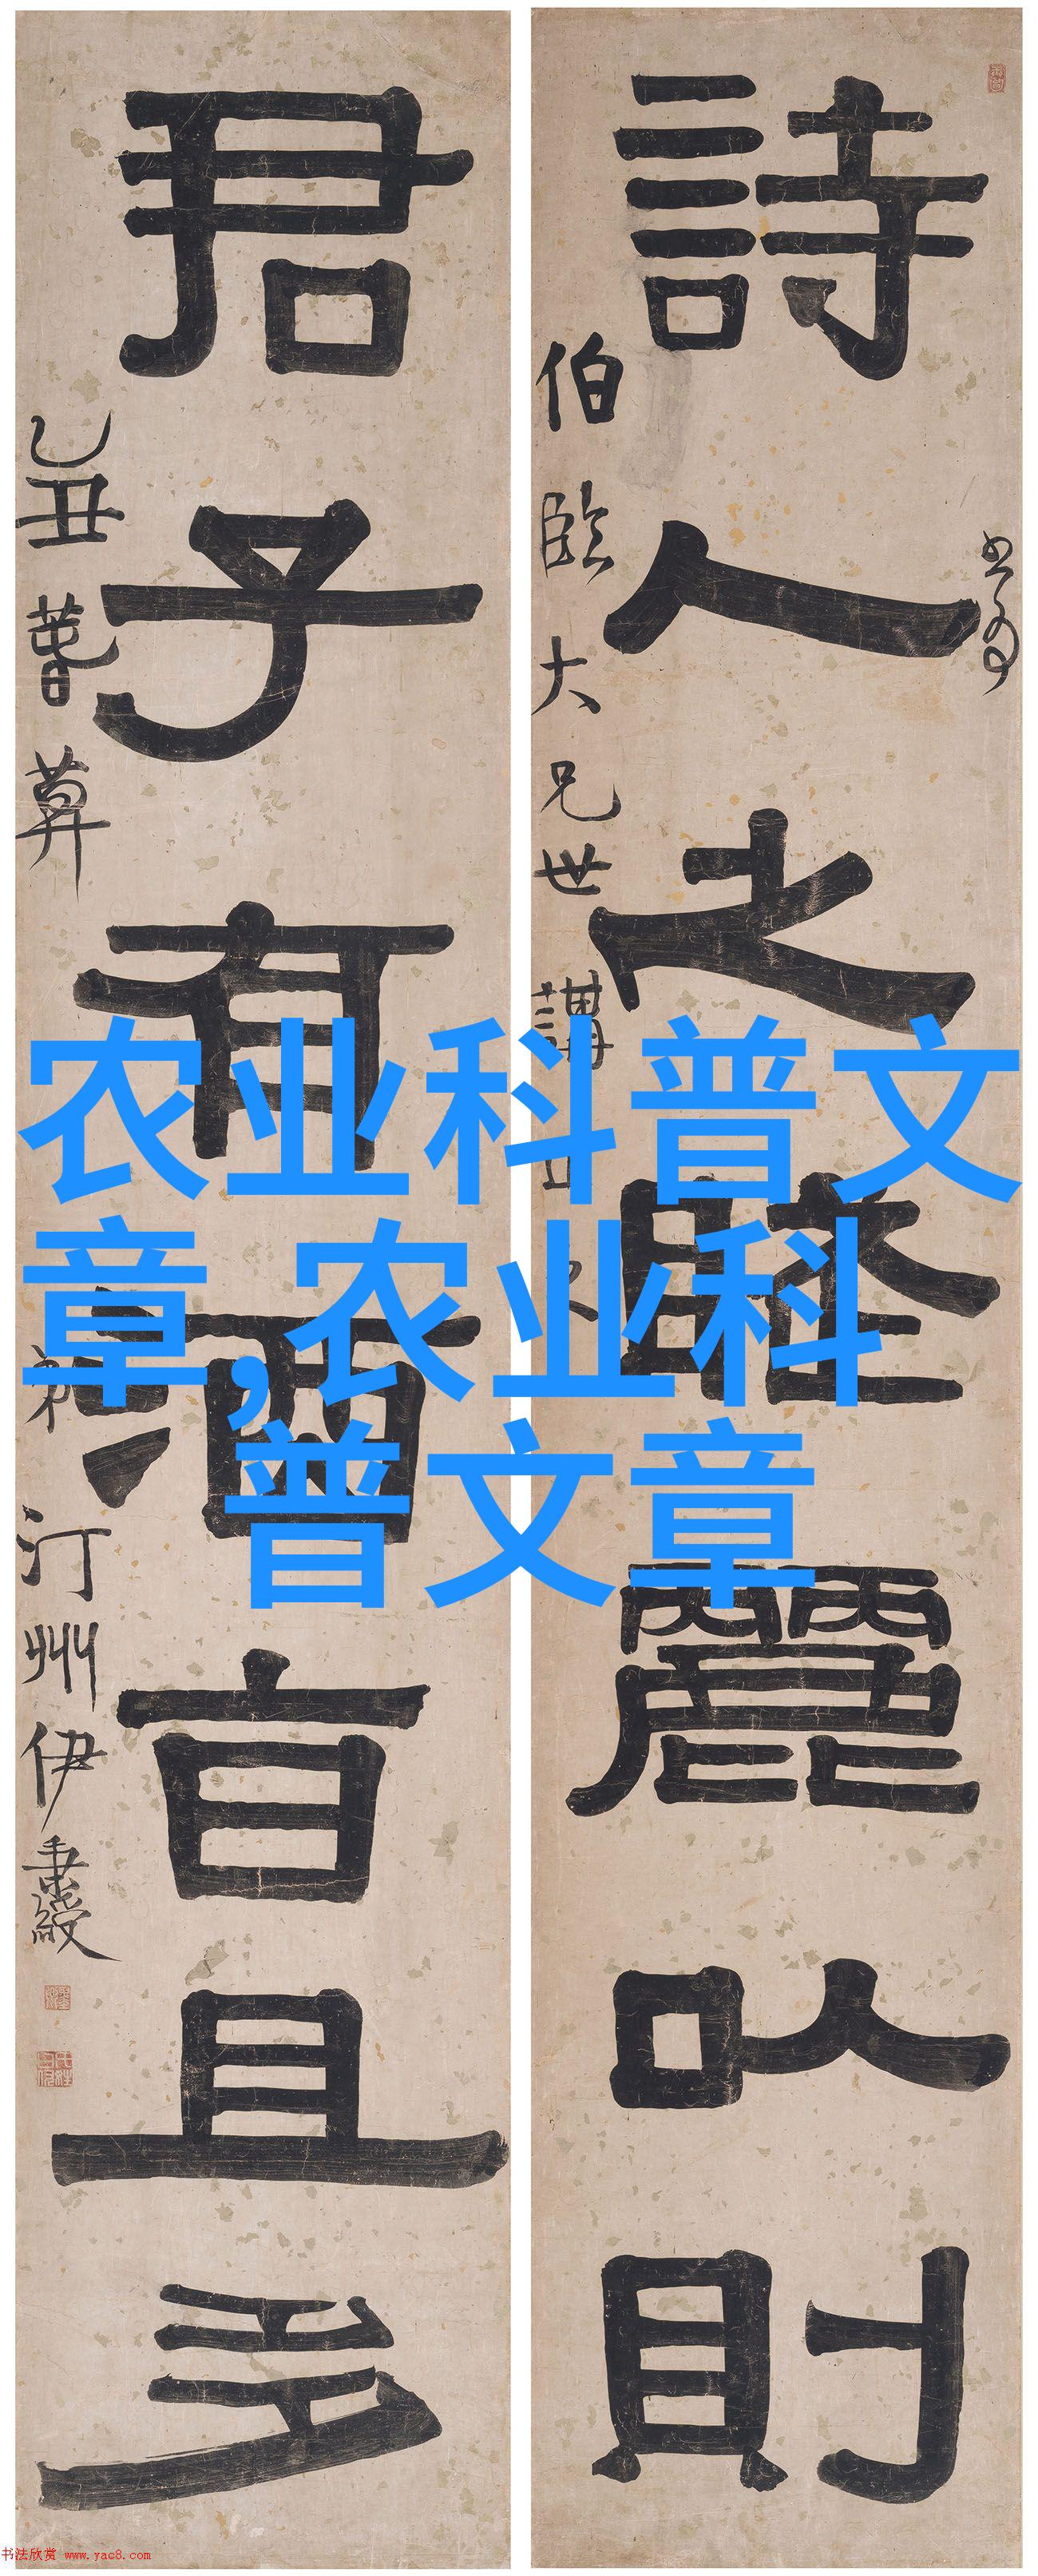 詩人之麗以則
伯臨大兄世講
君子有酒旨且多
乙丑
弟汀州伊秉綬
农业科普文
章,农业科
普文章
书法欣赏 www.yac8.com